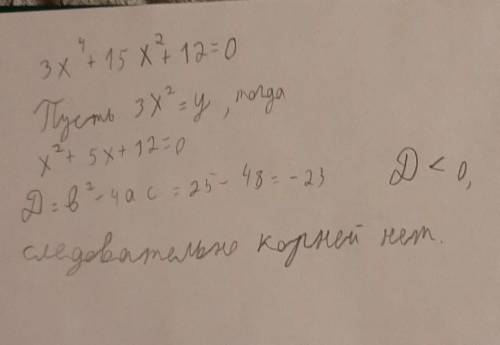 3x⁴ + 15x² + 12 = 0
Пусть 3x² = y, тогда
x² + 5x + 12 = 0
Д = в² - 4ас = 25 - 48 = -23 Д < 0,
следовательно корней нет.